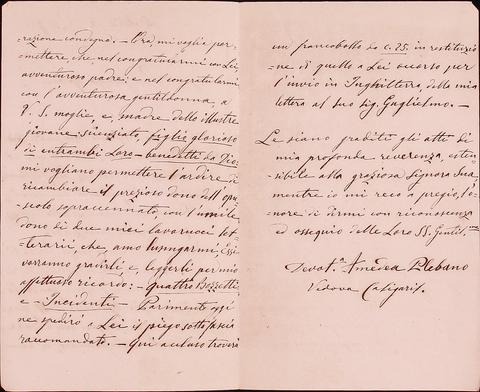 razione condegna. — Ora, mi voglia per-
mettere, che nel congratularmi con Lei,
avventuroso padre; e nel congratularmi
con l'avventurosa gentildonna, a
V. S. moglie, e, madre dello illustre
giovane scienziato, figlio glorioso
di entrambi Loro — benedetti da Dio,
mi vogliano permettere l'ardire di
ricambiare il prezioso dono dell'opu-
scolo sopraccennato, con l'umile
dono di due miei lavorucci let-
terarii, che, amo lusingarmi, Essi
vorranno gradirli, e, leggerli per mio
affettuoso ricordo: — Quattro Bozzetti,
e — Incidenti — Parimente oggi
ne spedirò a Lei il piego sotto fascia
raccomandato. — Qui accluso troverà
un francobollo da c. 25. in restituzio-
ne di quello a Lei occorso per
l'invio in Inghilterra, della mia
lettera al suo Sig. Guglielmo. —
Le siano graditi gli atti di
mia profonda reverenza, esten-
sibile alla graziosa Signora Sua
mentre io mi reco a pregio, l'o-
nore di dirmi con riconoscenza
ed ossequio delle Loro SS. Gentil.me
Devot.a Amedea Plebano
Vedova Caligaris.